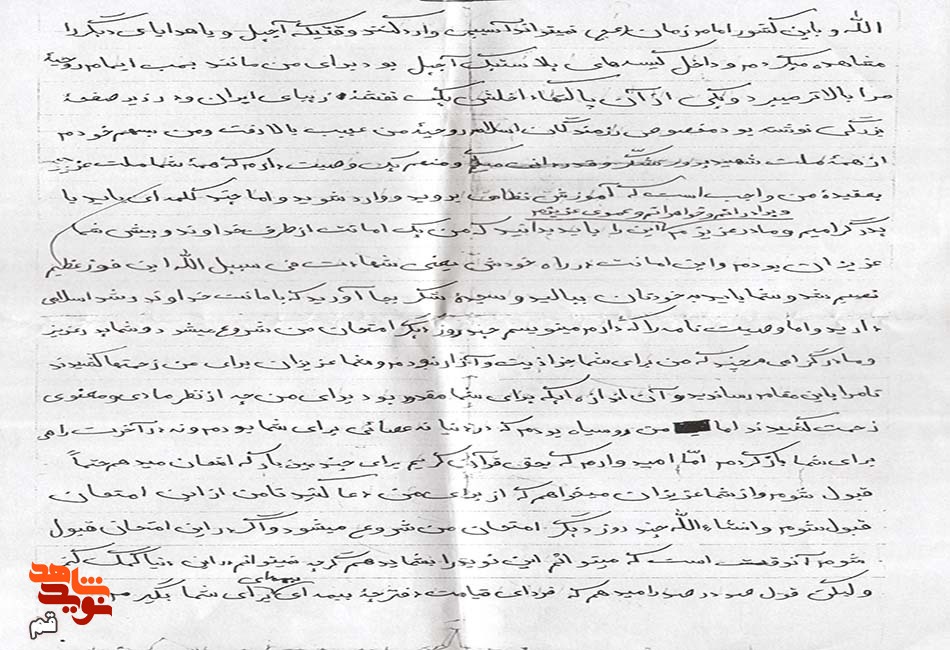 الله و باین کشور امام زمان (عج) نمیتواند آسیبی وارد کند وقتیکه آجیل و یا هدایای دیگر را
مشاهده میکردم و داخل کیسه های پلاستیک آجیل بود برای من مانند بمب ایمام روحیهٔ
مرا بالاتر میبرد و یکی از آن پاکتها داخلش یک نقشهٔ زیبای ایران و در زیر صفحهٔ
بزرگی نوشته بود مخصوص رزمندگان اسلام روحیهٔ من عجیب بالا رفت و من بسهم خودم
از همهٔ ملت شهیدپرور تشکر و قدردانی میکنم و منهم یک وصیت دارم که همهٔ شما ملت عزیز
بعقیدهٔ من واجب است که آموزش نظامی بروید و وارد شوید و اما چند کلمه ای باید با
و برادرانم و خواهرانم و عموی عزیزم
پدر گرامیم و مادر عزیزم این را باید بدانید که من یک امانت از طرف خداوند و پیش شما
عزیزان بودم و این امانت در راه خودش یعنی شهادت فی سبیل الله این فوز عظیم
نصیبم شد و شما باید به خودتان ببالید و سجدهٔ شکر بجا آورید که با امانت خداوند رشد اسلامی
دارید و اما وصیت نامه را که دارم مینویسم چند روز دیگر امتحان من شروع میشود و شما پدر عزیز
و مادر گرامی هر چند که من برای شما جز اذیت و آزار نبودم و شما عزیزان برای من زحمتها کشیدند
تا مرا باین مقام رساندید و آن اندازه ایکه برای شما مقدور بود برای من چه از نظر مادی و معنوی
زحمت کشیدند اما من روسیاه بودم که در دنیا نه عصائی برای شما بودم و نه در آخرت راهی
برای شما باز کردم اما امید وارم که بحق قرآن کریم برای چندمین بار که امتحان میدهم حتماً
قبول شوم و از شما عزیزان میخواهم که از برای من دعا کنید تا من از این امتحان
قبول شوم و انشاءالله چند روز دیگر امتحان من شروع میشود و اگر در این امتحان قبول
شوم آنوقت است که میتوانم این نوید را بشما بدهم گرچه نمیتوانم در این دنیا کمک کنم
ولیکن قول صد در صد را میدهم که فردای قیامت دفترچهٔ بیمه ای برای شما بگیرم
بیمهٔ
شاهد
نوید
قم